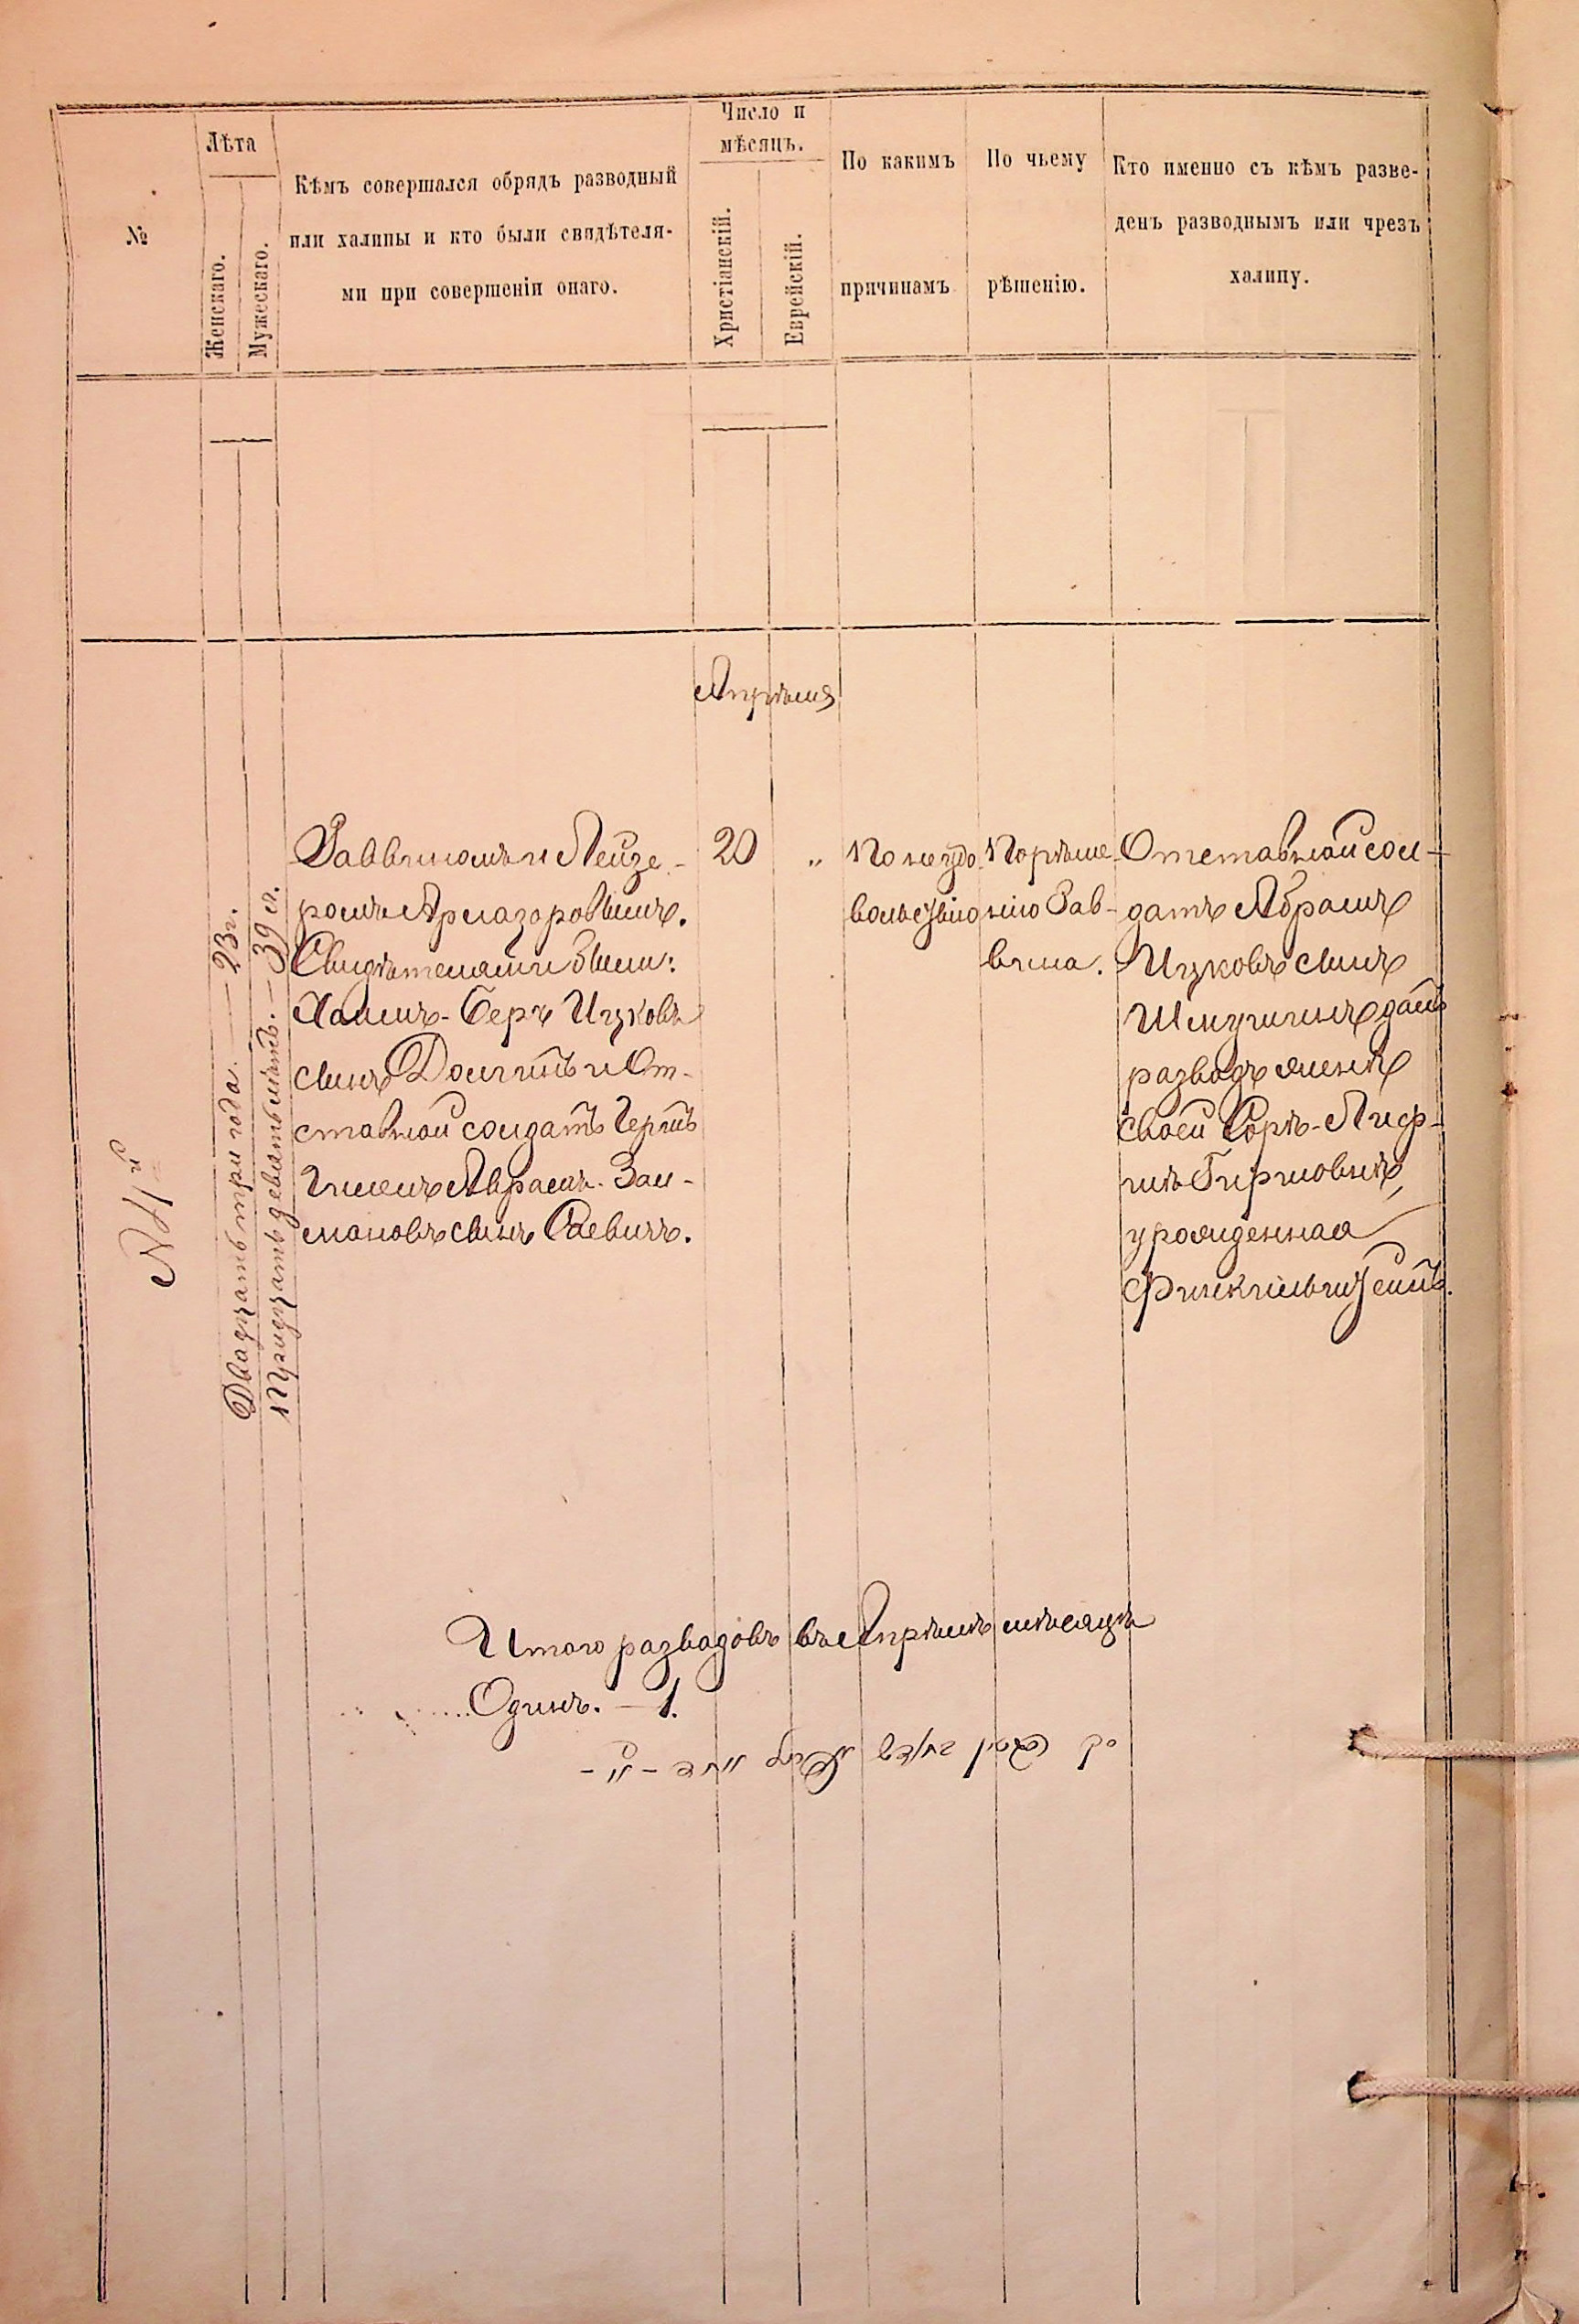 №
Лѣта
Женскаго.
Мужескаго.
Кѣмъ совершался обрядъ разводный
или халицы и кто были свидѣтеля-
ми при совершеніи онаго.
Число и
мѣсяцъ.
Христіанскій.
Еврейскій.
По какимъ
причинамъ
По чьему
рѣшенію.
Кто именно съ кѣмъ разве-
денъ разводнымъ или чрезъ
халицу.
Апрѣля
Двадцать три года. — 23 г.
Тридцать девять лѣтъ. — 39 л.
Раввиномъ Лейзе-
ромъ
Свидѣтелями были:
Хаимъ-Беръ Ицковъ
сынъ и От-
ставной солдатъ
Аврамъ Зал-
мановъ сынъ Раевичъ.
20 „
По неудо-
вольствію
По рѣше-
нію Рав-
вина.
Отставной сол-
датъ Абрамъ
Ицковъ сынъ
далъ
разводъ женѣ
своей Сорѣ-
Гиршовнѣ,
урожденная
Итого разводовъ въ Апрѣлѣ мѣсяцѣ
Одинъ. — 1.